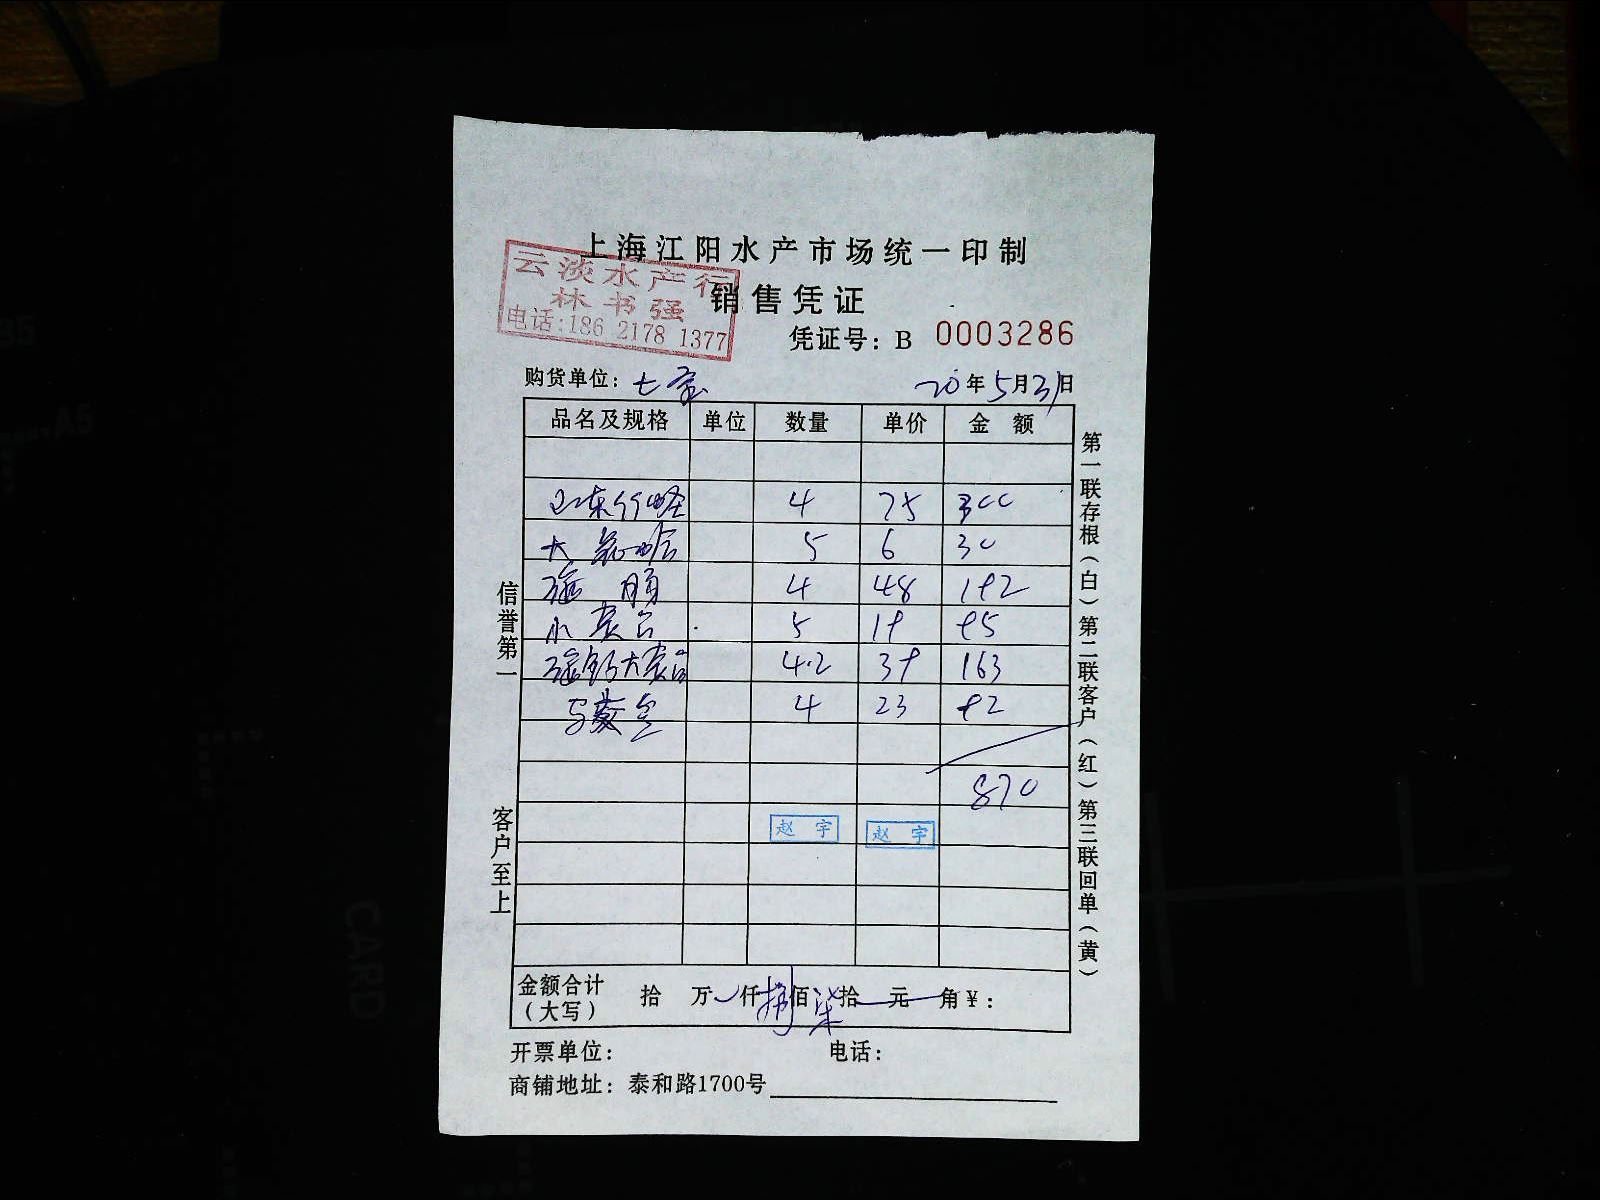 上海江阳水产市场统一印制
云淡水产行
林书强
电话:186 2178 1377
销售凭证
凭证号: B 0003286
购货单位: 七宝 20年5月31日
品名及规格 单位 数量 单价 金额
山东竹蛏 4 75 300
大 5 6 30
4 48 192
小 5 19 95
大 4.2 39 163
4 23 92
870
赵宇 赵宇
金额合计(大写) 拾 万 仟 捌佰 柒拾 元 角 ¥:
开票单位: 电话:
商铺地址: 泰和路1700号
信誉第一
客户至上
第一联存根(白)第二联客户(红)第三联回单(黄)